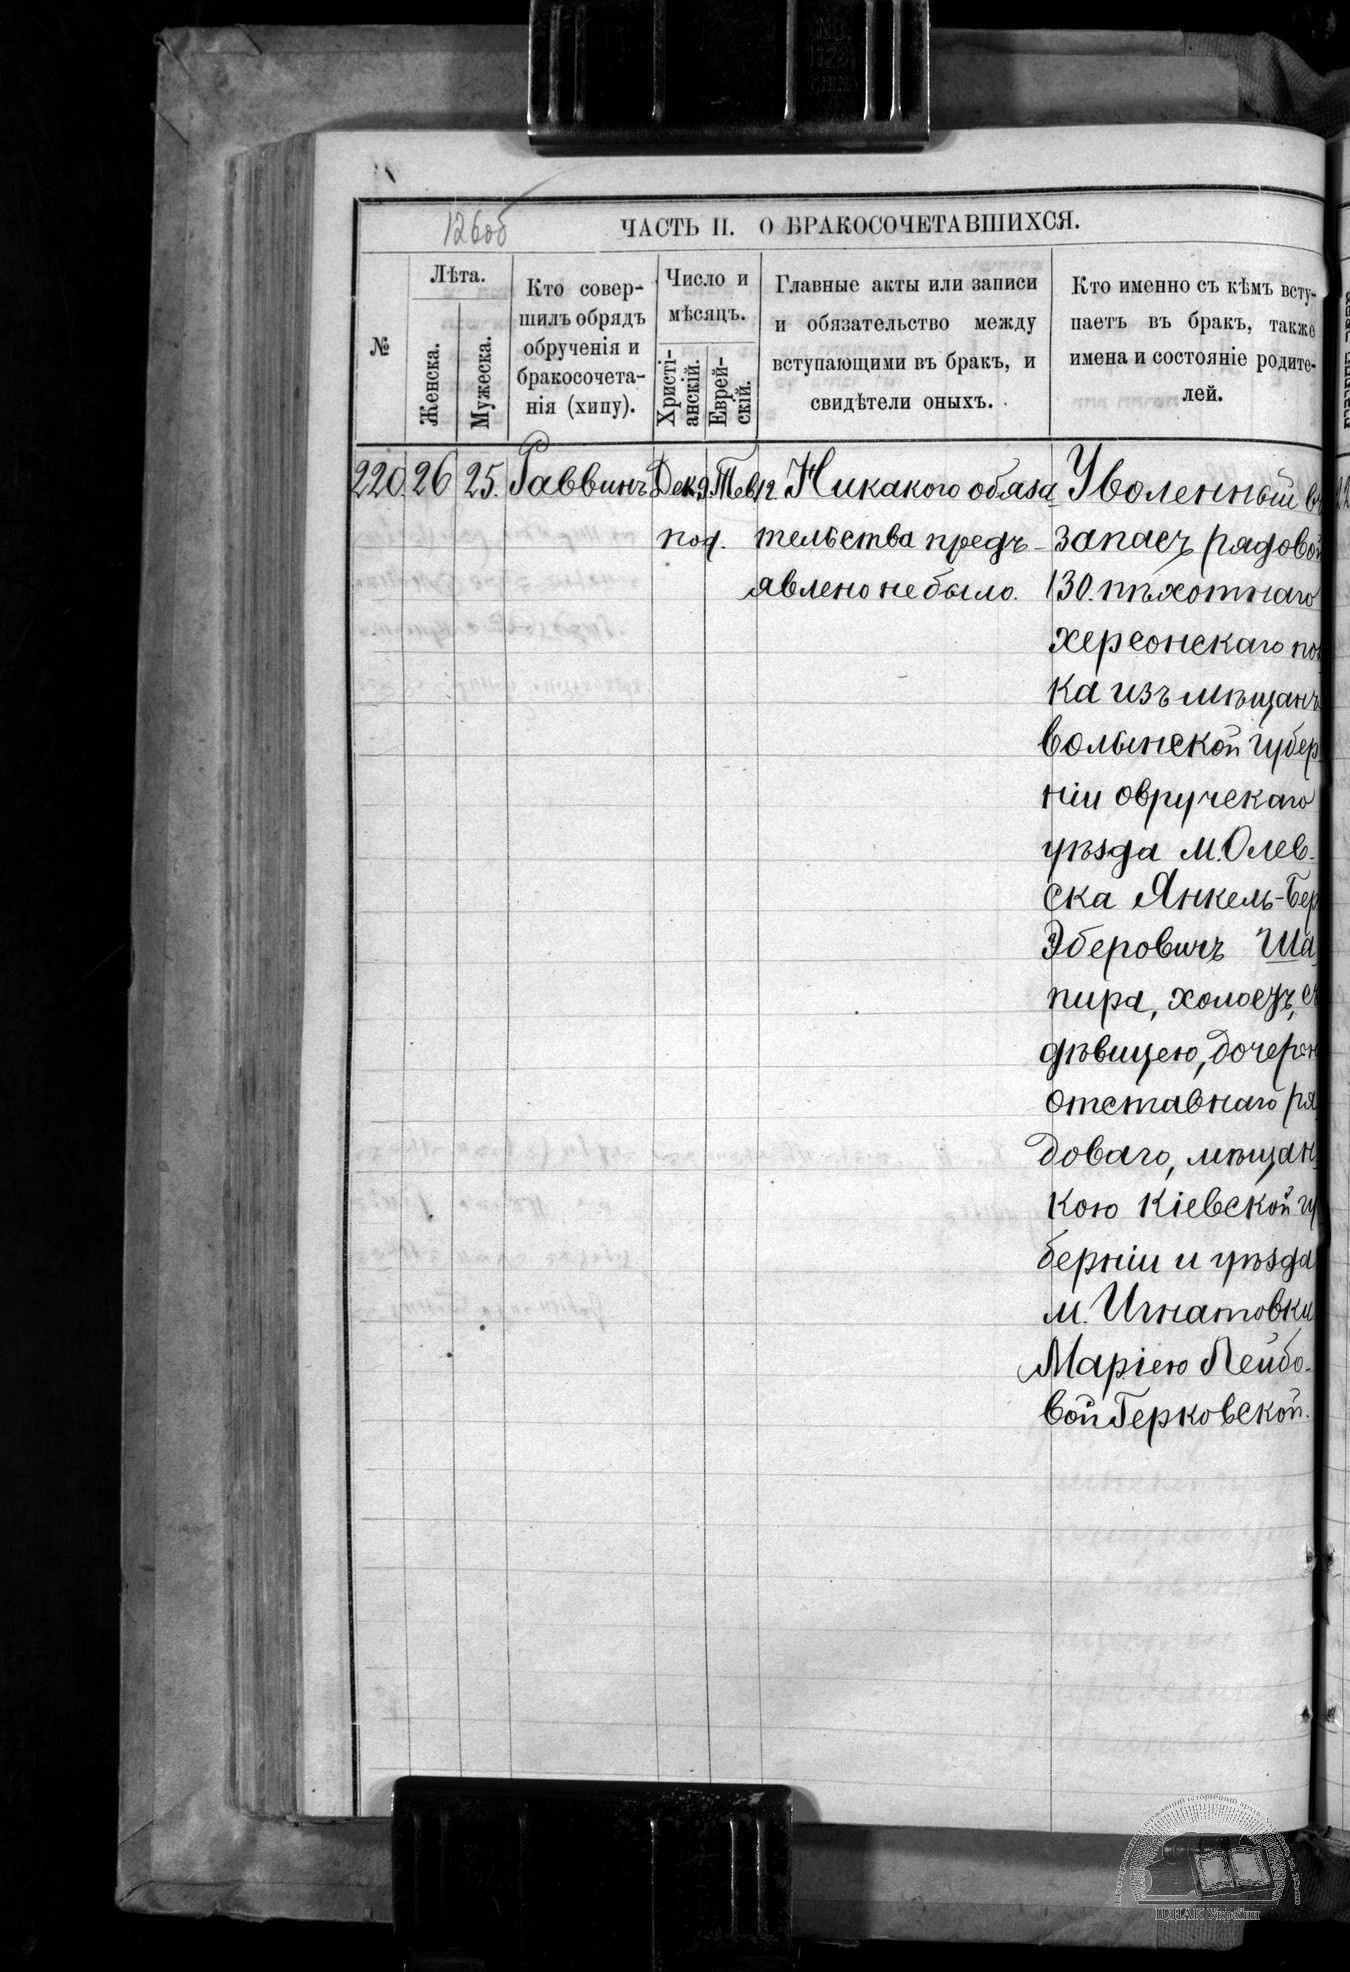 126об
ЧАСТЬ II. О БРАКОСОЧЕТАВШИХСЯ.
№
Лѣта.
Женска.
Мужеска.
Кто совер-
шилъ обрядъ
обрученія и
бракосочета-
нія (хипу).
Число и
мѣсяцъ.
Христі-
анскій.
Еврей-
скій.
Главные акты или записи
и обязательство между
вступающими въ бракъ, и
свидѣтели оныхъ.
Кто именно съ кѣмъ всту-
паетъ въ бракъ, также
имена и состояніе родите-
лей.
220. 26 25. Раввинъ Дек. 9. Тев. 12. Никакого обяза
тельства предъ-
явлено не было.
Уволенный въ
запасъ рядовой
130. пѣхотнаго
херсонскаго пол
ка изъ мѣщанъ
волынской губер
ніи овручскаго
уѣзда м. Олев-
ска Янкель-Бер
Эберовичъ Ша
пира, холостъ, съ
дѣвицею, дочерью
отставнаго ря
доваго, мѣщан
кою кіевской гу
берніи и уѣзда
м. Игнатовки
Маріею Лейбо-
вой Герковской.
ЦДІАК України